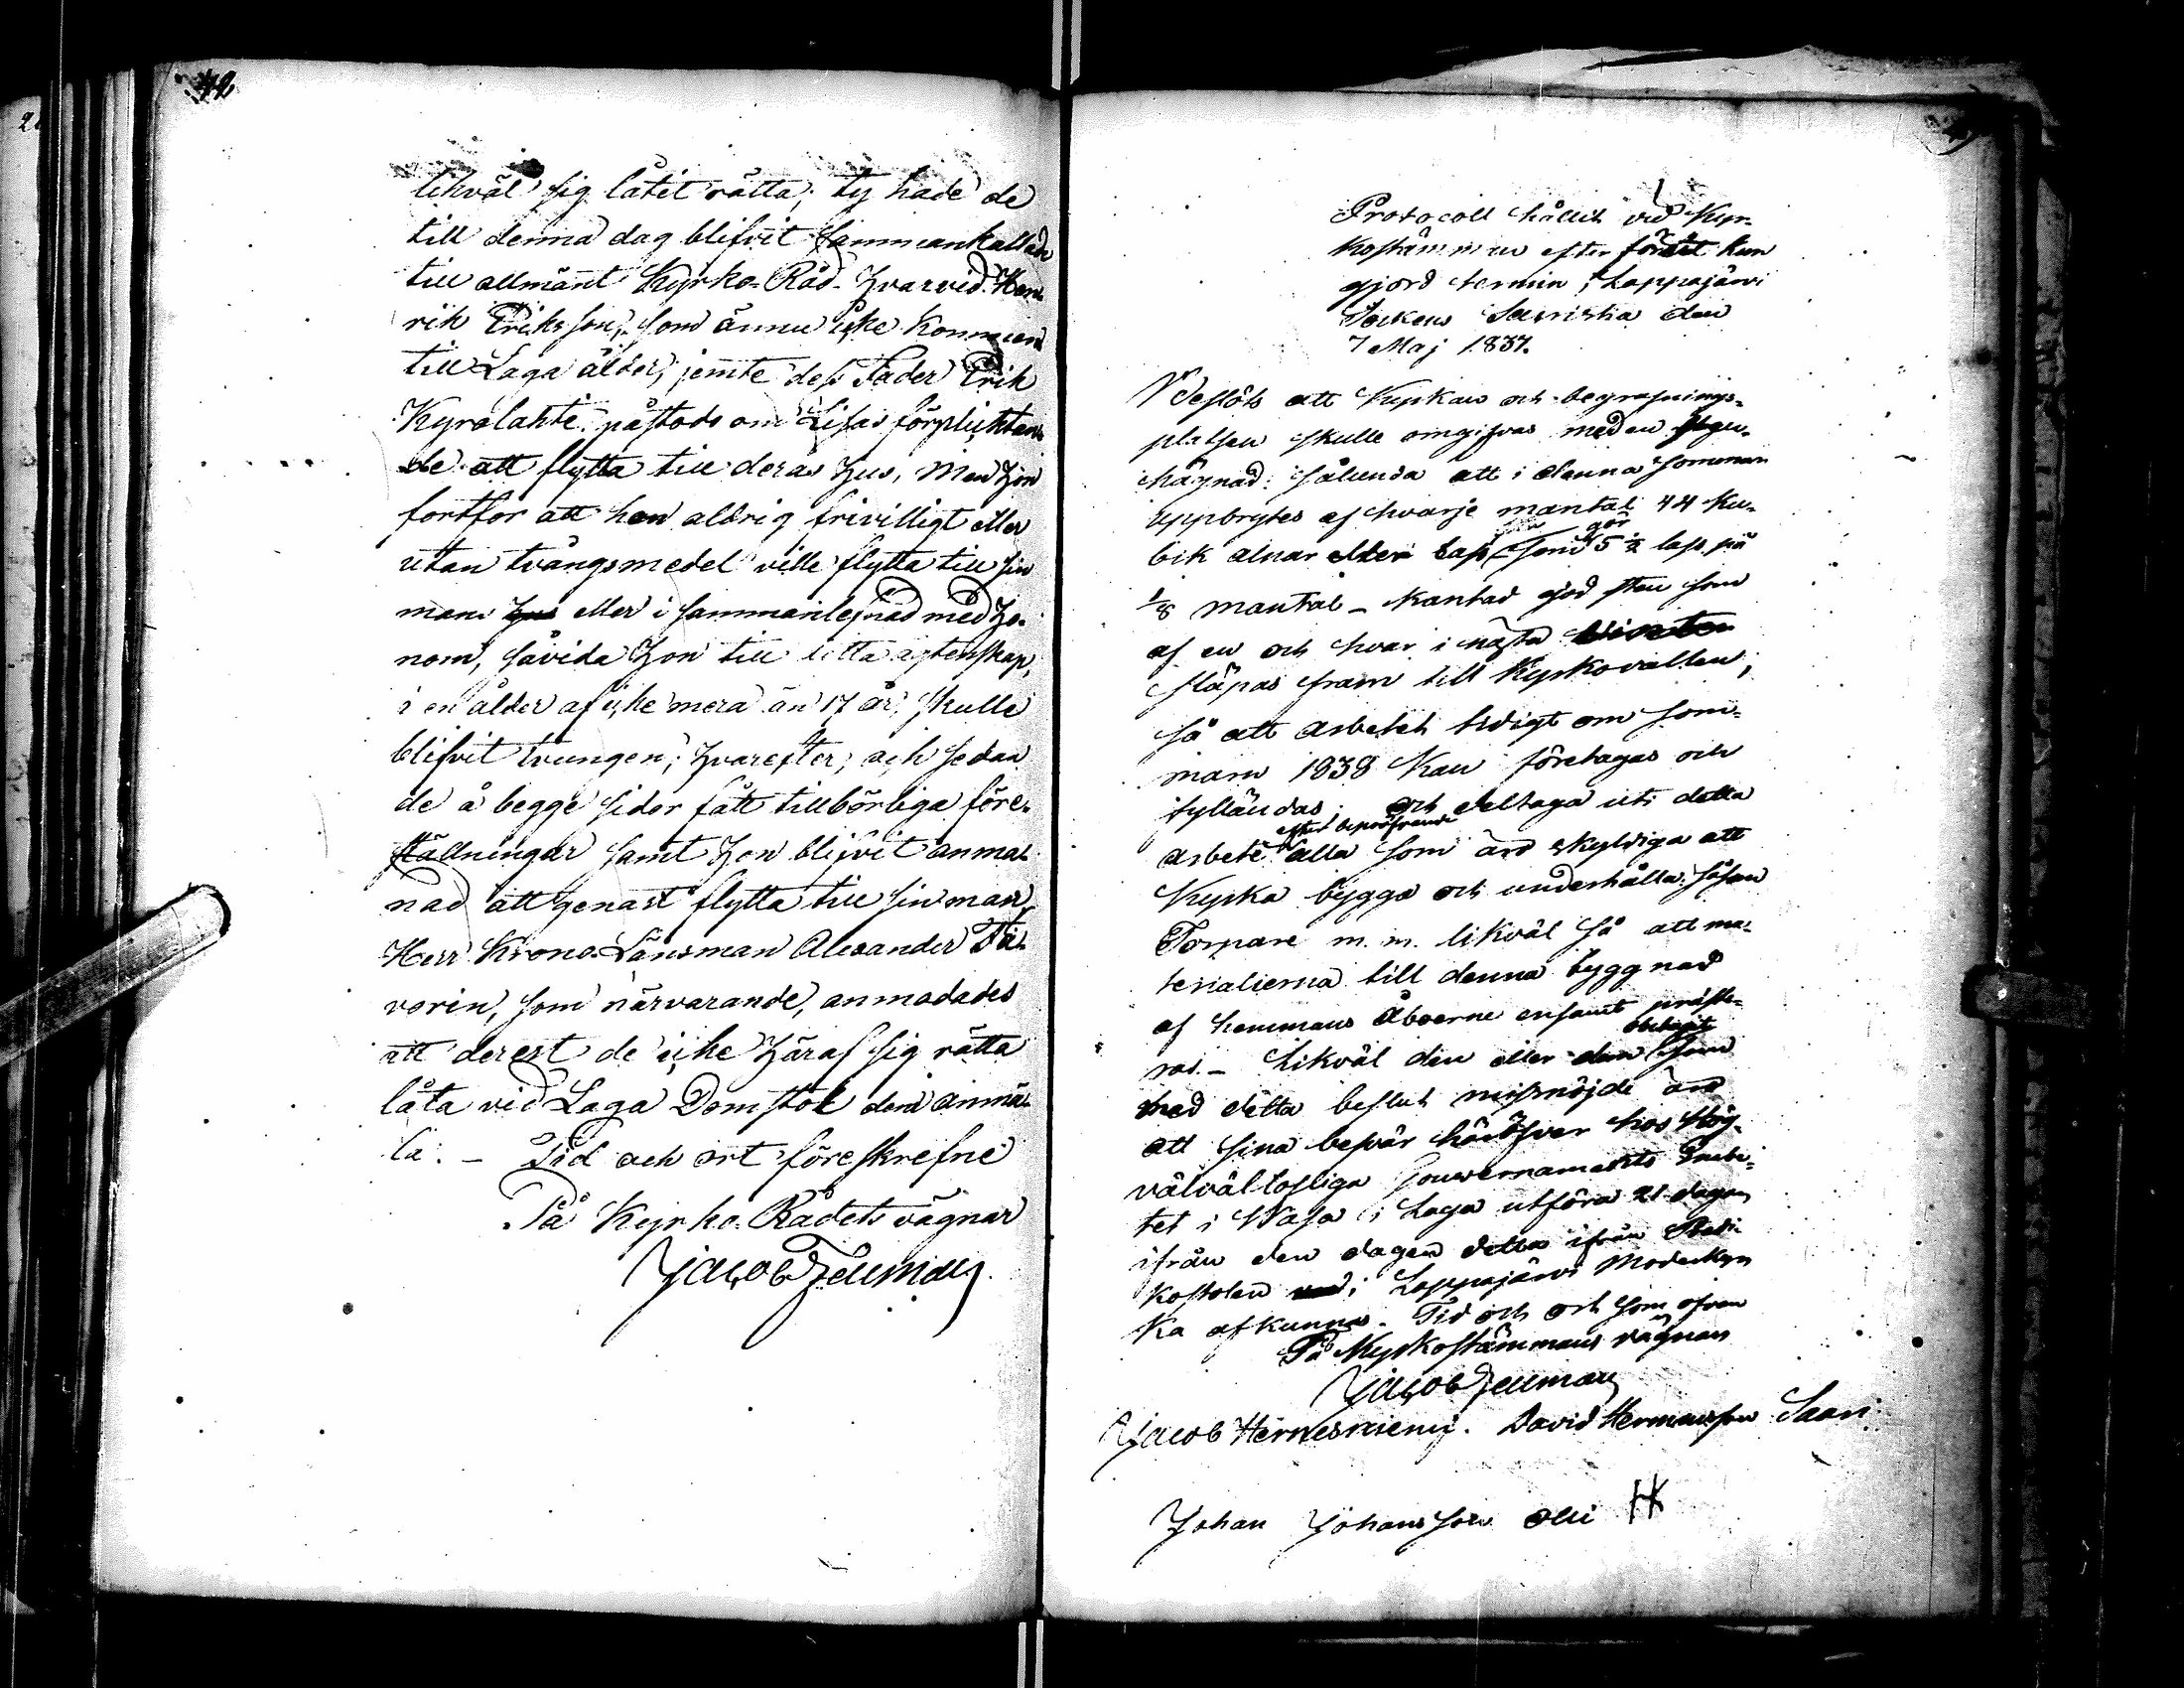 42
likväl sig låtit rätta; ty hade de
till denna dag blifvit sammankallade
till allmänt Kyrko-Råd. Hvarvid Hen-
rik Eriksson, som ännu icke kommen
till Laga ålder, jemte dess Fader Erik
Kyrölahti påstods om Lisas förpligtan-
de att flytta till deras hus, men hon
fortfor att hon aldrig frivilligt eller
utan tvångsmedel ville flytta till sin
mans hus eller i sammanlefnad med ho-
nom, såvida hon till detta ägtenskap,
i en ålder af icke mera än 17 år, skulle
blifvit tvungen; hvarefter, och sedan
de å begge sidor fått tillbörliga före-
ställningar samt hon blifvit anma-
nad att genast flytta till sin man,
Herr Krono-Länsman Alexander Fa-
vorin, som närvarande, anmodades
att derest de icke häraf sig rätta
låta vid Laga Domstol dem anmä-
la. – Tid och ort föreskrefne
På Kyrko-Rådets vägnar
Jacob Fellman
Protocoll hållit vid Kyr-
kostämman efter förut kun
gjord termin i Lappajärvi
Sockens Sacristia den
7 Maj 1837.
Beslöts att Kyrkan och begrafnings-
platsen skulle omgifvas med en sten-
hägnad: sålunda att i denna sommar
uppbrytes af hvarje mantal 44 ku-
bik alnar eller lass som gör 5 ½ lass på
1/8 mantal – kantad god sten som
af en och hvar i nästa vinter
släpas fram till Kyrkovallen;
så att arbetet tidigt om som-
maren 1838 kan företagas och
fylländas; och deltaga uti detta
arbete efter bepröfvande alla som äro skyldiga att
Kyrka bygga och underhålla såsom
Torpare m. m. likväl så att ma-
terialierna till denna byggnad
af hemmans Åboerne ensamt präste-
ras. – Likväl den eller dem obehagit som
med detta beslut missnöjde äro
att sina besvär häröfver hos Hög-
välvälloflige Gouvernements Embe-
tet i Wasa i Laga utföra 21 dagen
ifrån den dagen detta ifrån Predi-
kostolen i Lappajärvi Moderkyr
ka afkunnas. Tid och ort som ofvan
På Kyrkostämmans vägnar
Jacob Fellman
Jacob Hernesniemi. David Hermansson Saari
Johan Johansson Olli HK